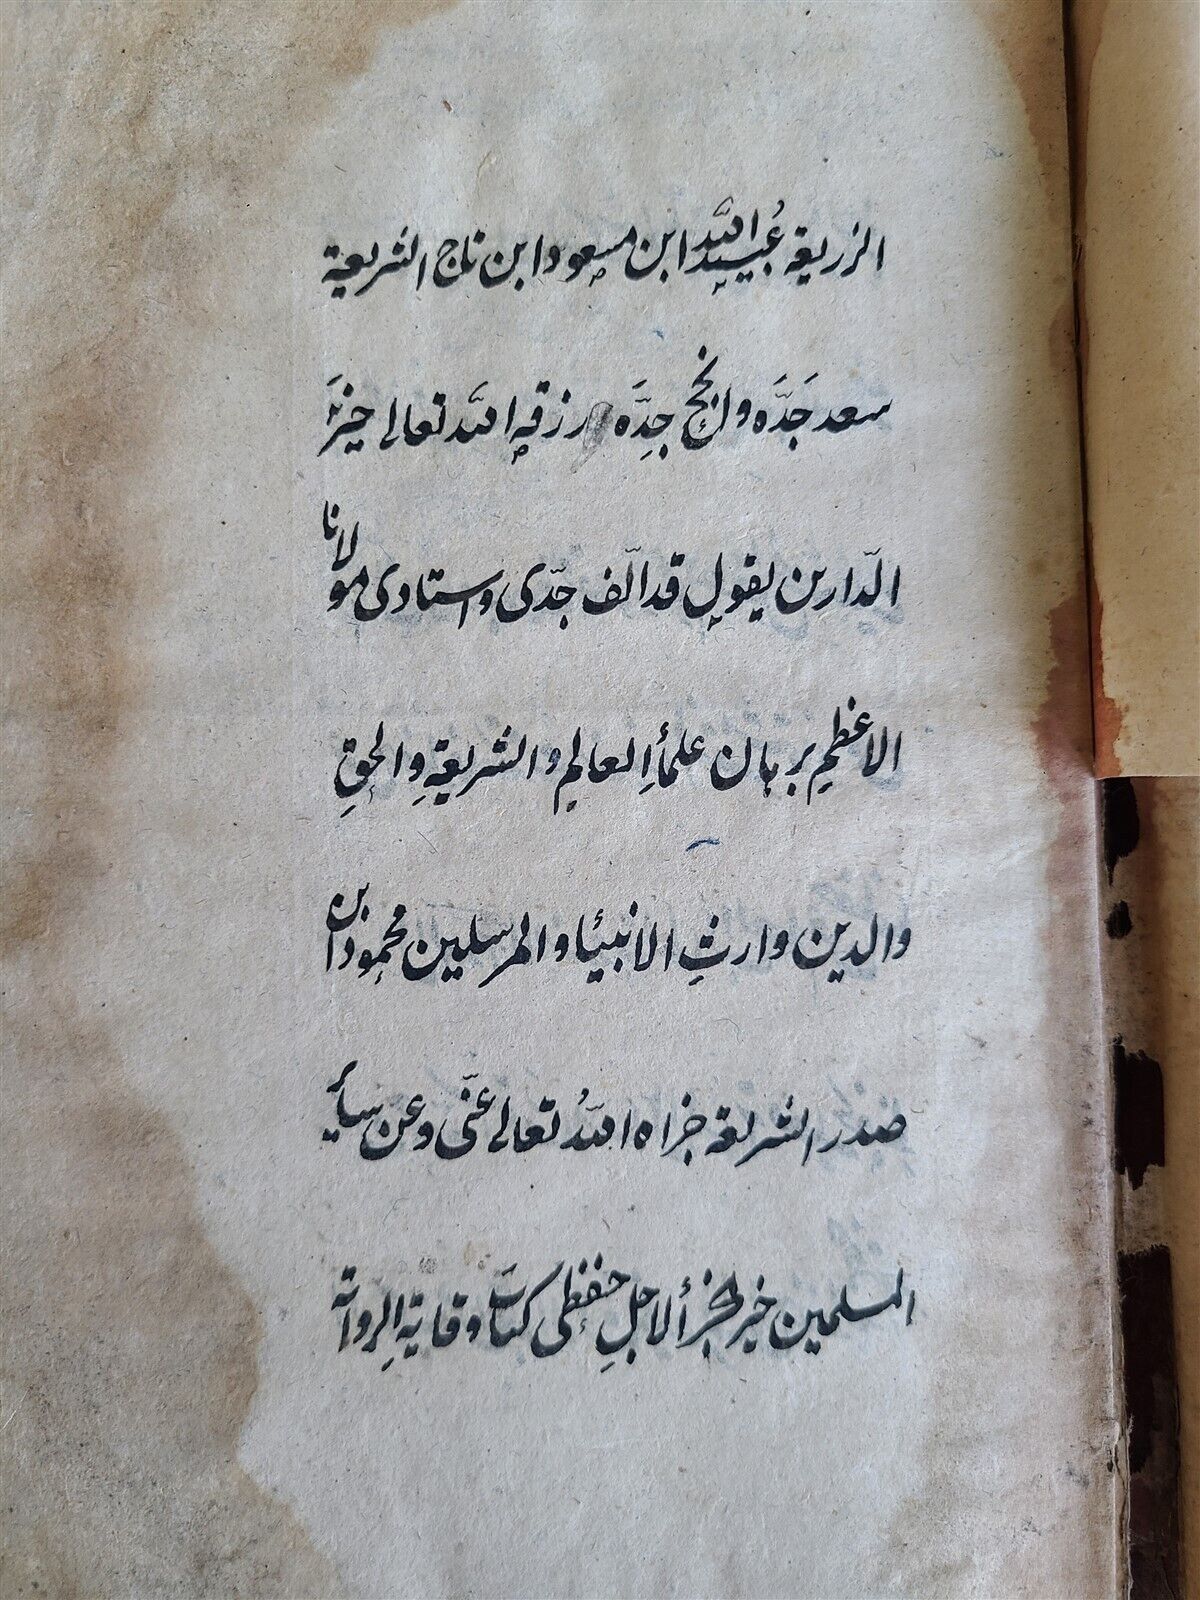 الزریعة عُبید اللّٰه ابن مسعود ابن تاج الشریعة
سعد جَدَّه وانجح جِدَّه رزقه اللّٰه تعالی خیرَ
الدّارین یقول قد الّف جدّی واستادی مولانا
الاعظمِ برهان علمأِ العالمِ والشریعةِ والحقِ
والدین وارثِ الانبیٔا والمرسلین محمود ابن
صدر الشریعة جزاه اللّٰهُ تعالی عنّی وعن سایٔر
المسلمین خیر الجزأ لاجلِ حفظی کتابَ وقایةِ الروایة